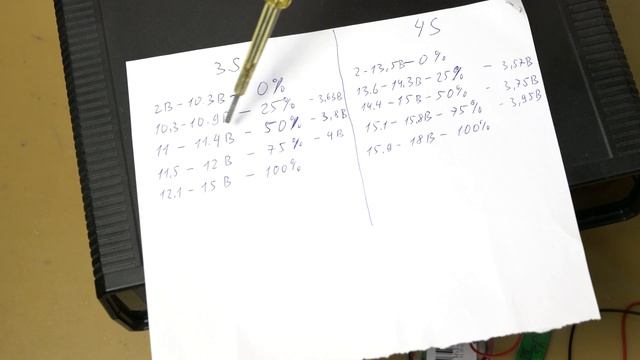 3S
2В - 10.3В - 0%
10,3 - 10.9В - 25% - 3,63В
11 - 11.4В - 50% - 3,8В
11,5 - 12В - 75% - 4В
12,1 - 15В - 100%
4S
2 - 13,5В - 0%
13.6 - 14.3В - 25% - 3,57В
14.4 - 15В - 50% - 3,75В
15.1 - 15.8В - 75% - 3,95В
15.9 - 18В - 100%